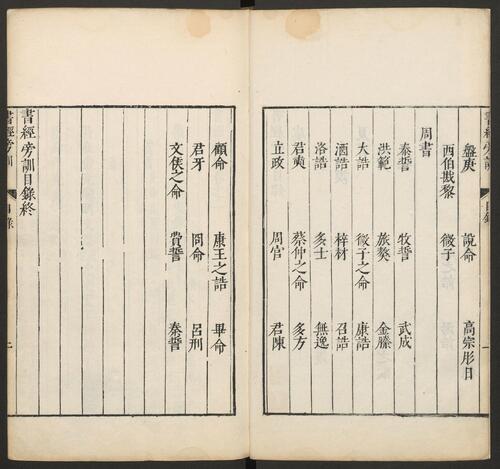 書經旁訓 目錄 一
盤庚 說命 高宗肜日
西伯戡黎 微子
周書
泰誓 牧誓 武成
洪範 旅獒 金縢
大誥 微子之命 康誥
酒誥 梓材 召誥
洛誥 多士 無逸
君奭 蔡仲之命 多方
立政 周官 君陳
顧命 康王之誥 畢命
君牙 冏命 呂刑
文侯之命 費誓 秦誓
書經旁訓目錄終
書經旁訓 目錄 二